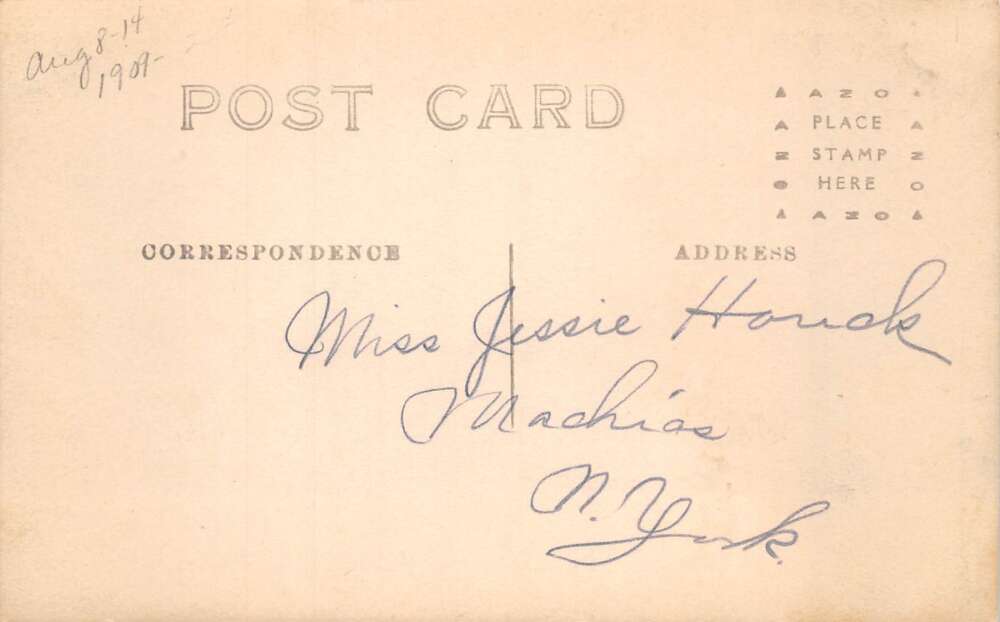 Aug 8-14
1909-
POST CARD
AZO
PLACE
STAMP
HERE
AZO
CORRESPONDENCE
ADDRESS
Miss Jessie Houck
Machias
N. York.